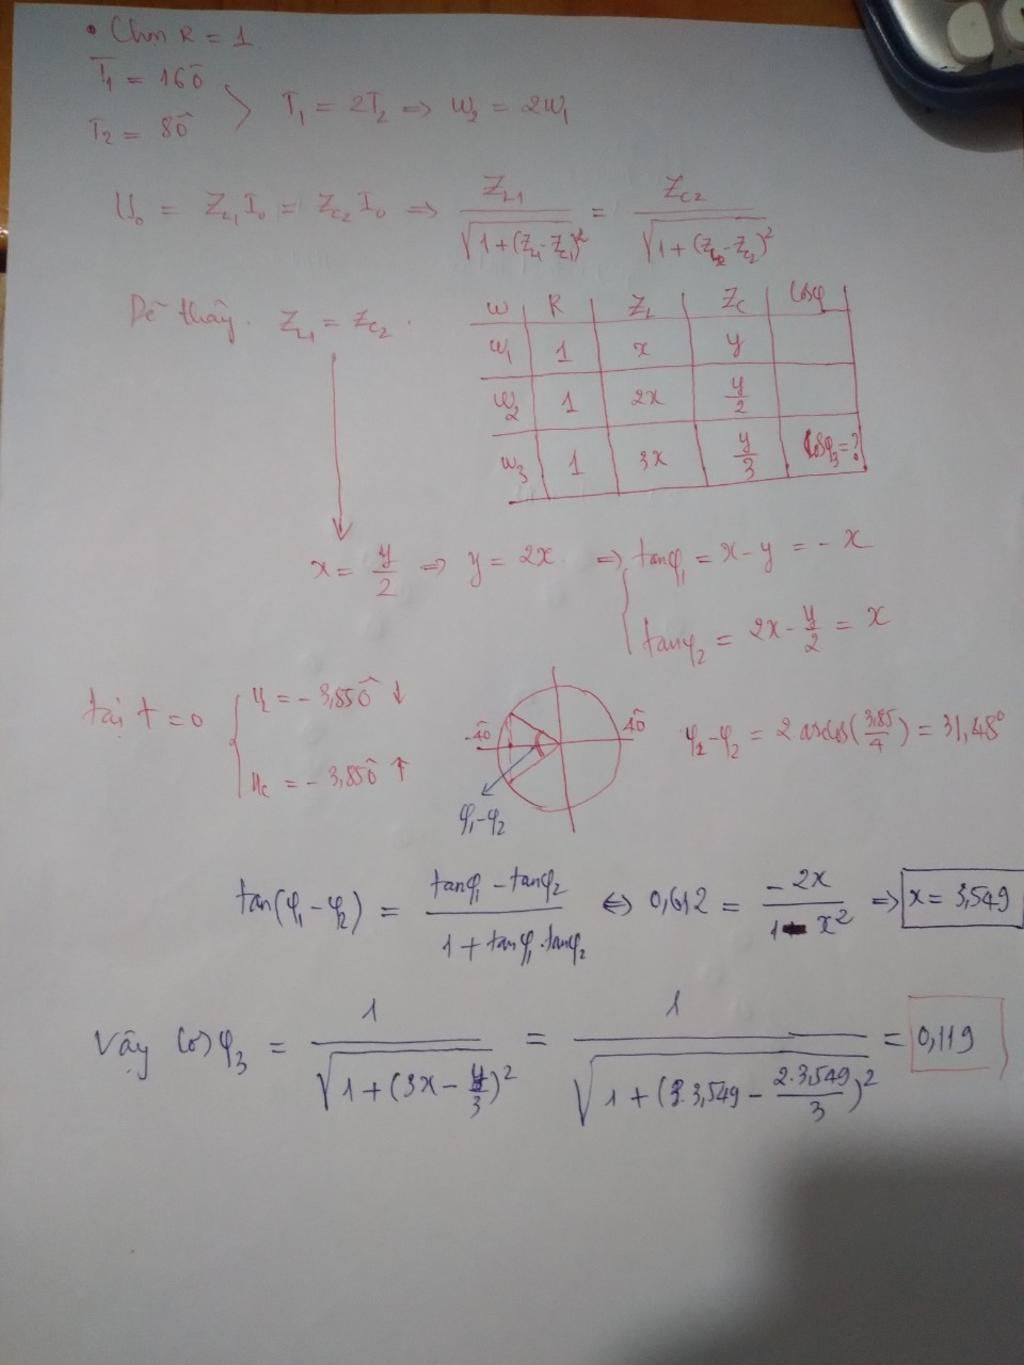 • Chọn R = 1
T₁ = 16ô
T₂ = 8ô
T₁ = 2T₂ ⇒ ω₂ = 2ω₁
U₀ = Z_L₁ I₀ = Z_C₂ I₀ ⇒ Z_L₁ / √(1+(Z_L₁-Z_C₁)²) = Z_C₂ / √(1+(Z_L₂-Z_C₂)²)
Dễ thấy Z_L₁ = Z_C₂.
ω | R | Z_L | Z_C | Cosφ
ω₁ | 1 | x | y
ω₂ | 1 | 2x | y/2
ω₃ | 1 | 3x | y/3 | Cosφ₃=?
x = y/2 ⇒ y = 2x. ⇒ { tanφ₁ = x - y = - x
tanφ₂ = 2x - y/2 = x
tại t = 0 { = - 3,85ô ↓
u_C = - 3,85ô ↑
-4ô 4ô
φ₁-φ₂
φ₂-φ₂ = 2 arccos(3,85/4) = 31,48°
tan(φ₁ - φ₂) = (tanφ₁ - tanφ₂) / (1 + tanφ₁.tanφ₂) ⇔ 0,612 = -2x / (1 - x²) ⇒ x = 3,549
Vậy Cosφ₃ = 1 / √(1 + (3x - y/3)²) = 1 / √(1 + (3.3,549 - 2.3,549/3)²) = 0,119